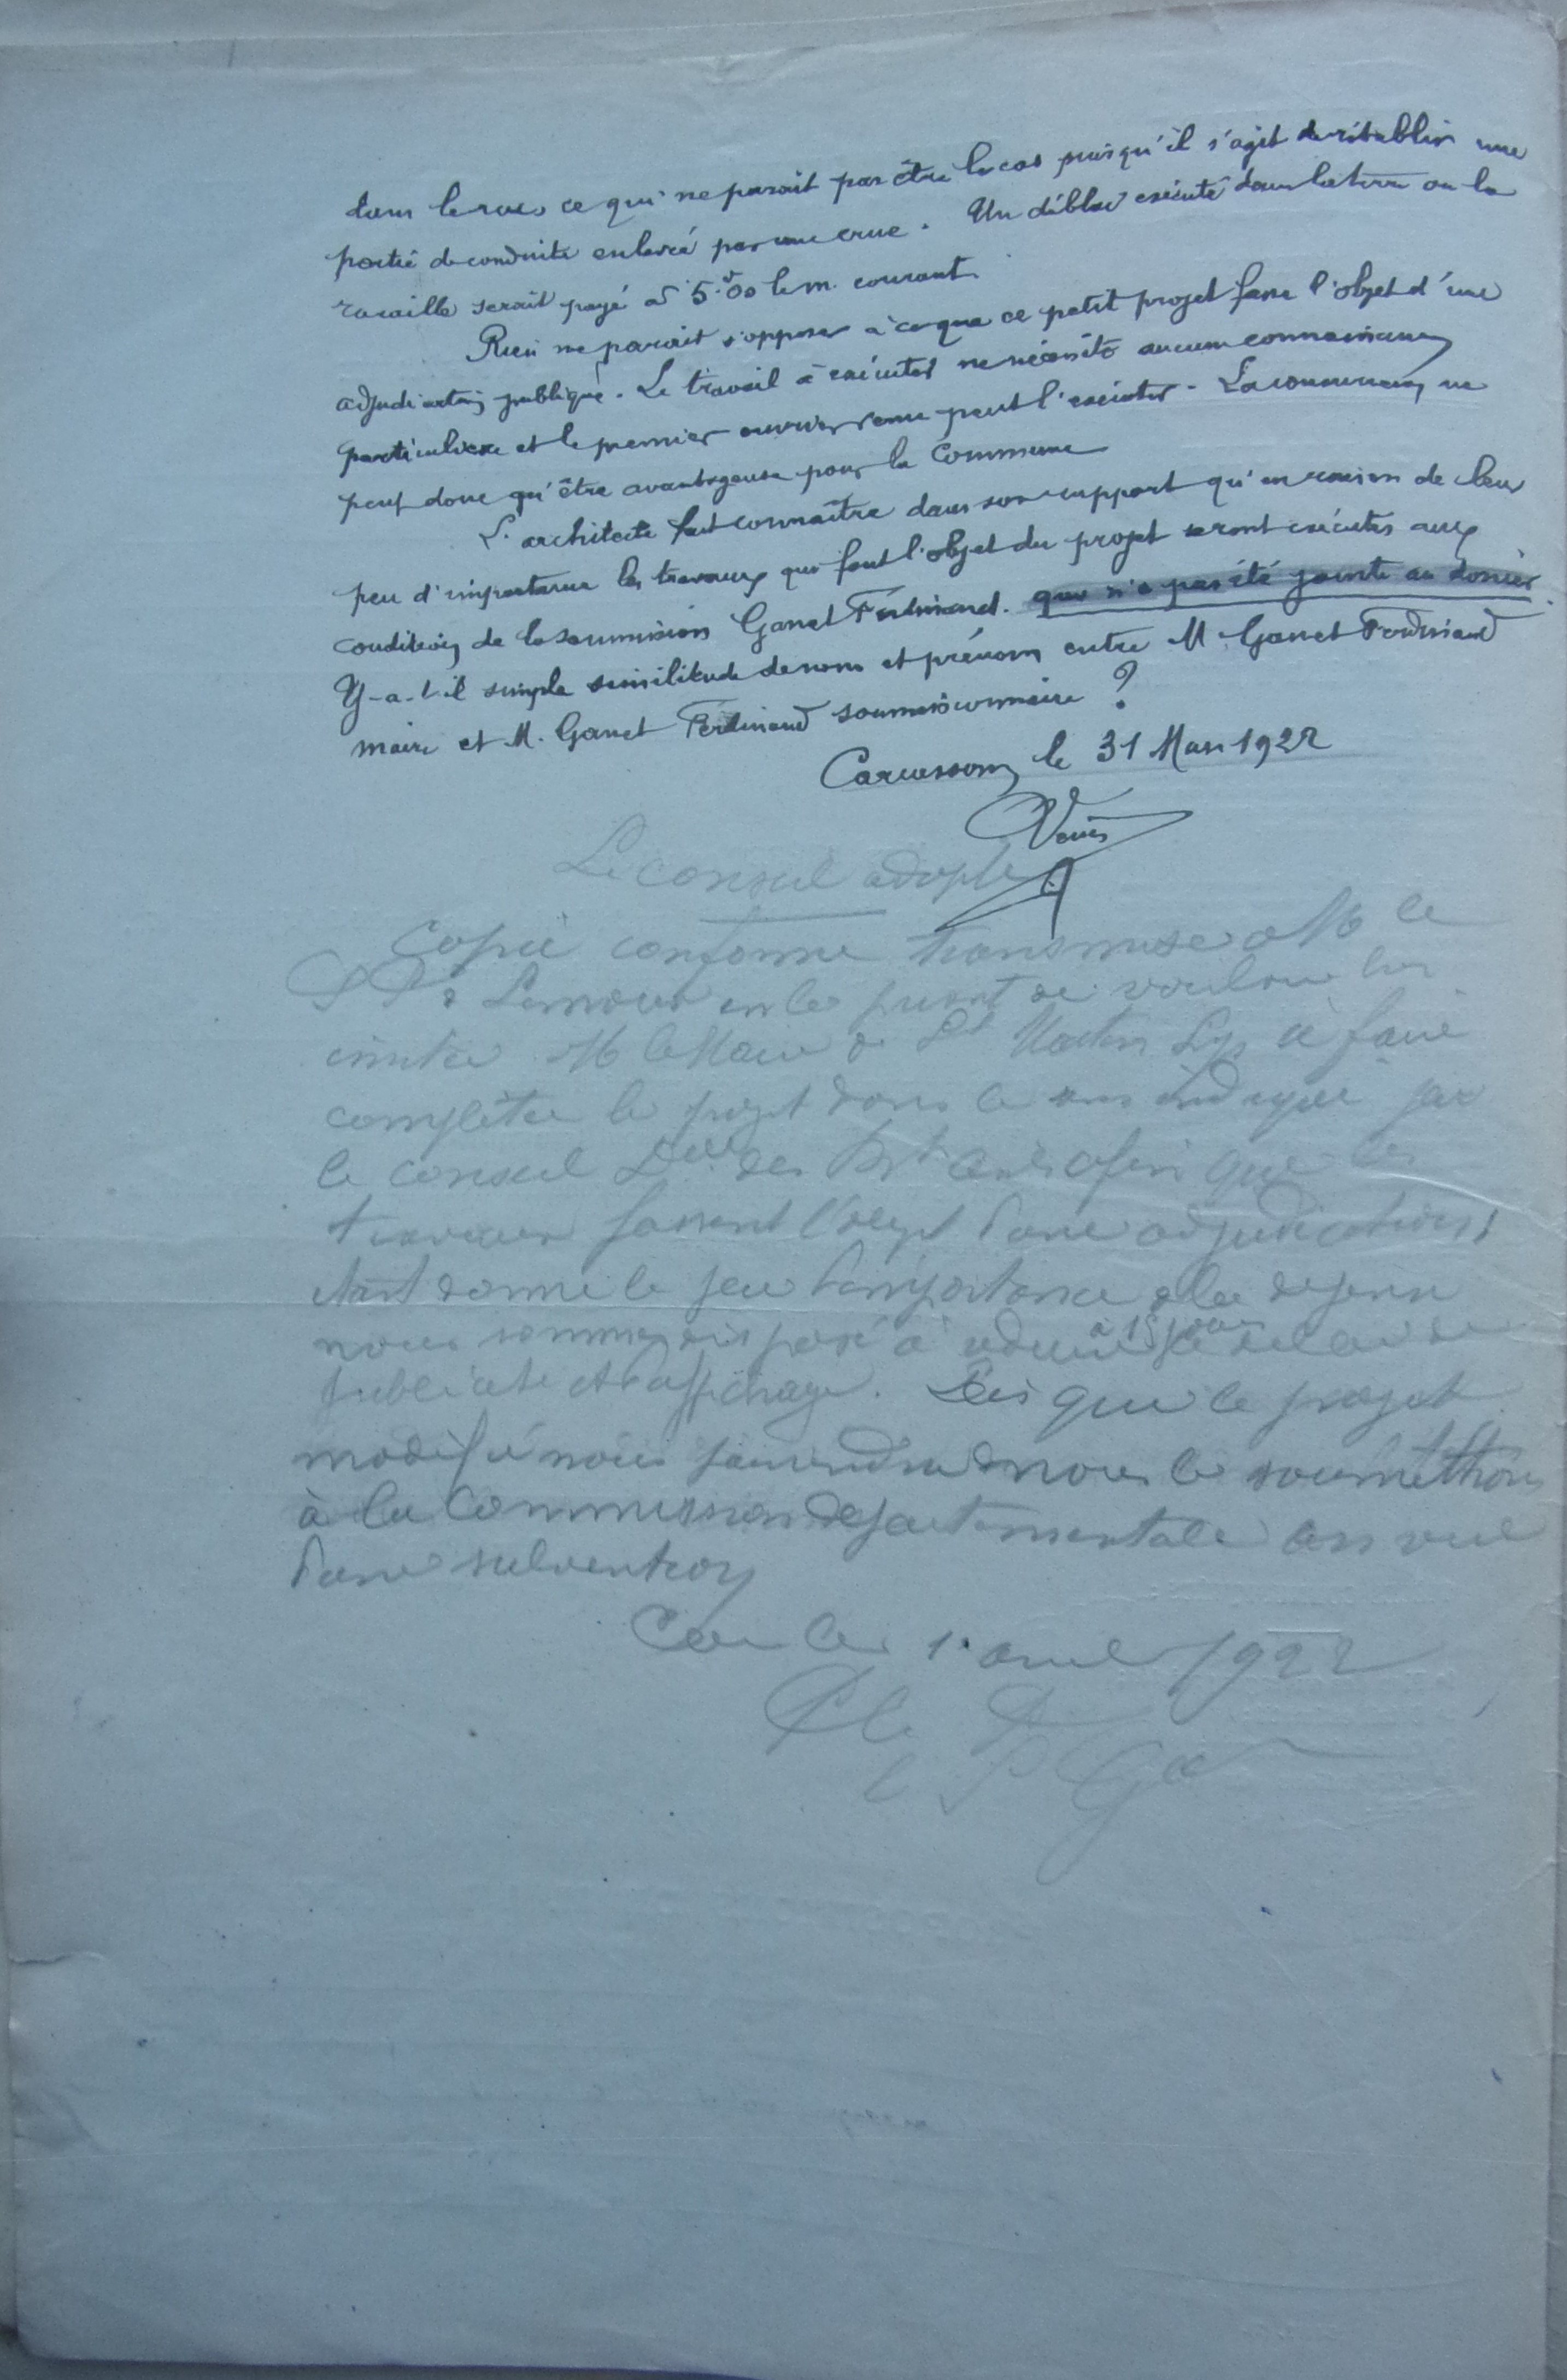 dans le roc, ce qui ne parait pas être le cas puisqu'il s'agit de rétablir une
partie de conduite enlevée par une crue. Un déblai exécuté dans la terre ou la
rocaille serait payé à 5f.00 le m. courant.
Rien ne parait s'opposer à ce que ce petit projet fasse l'objet d'une
adjudication publique. Le travail à exécuter ne nécessite aucune connaissance
particulière et le premier ouvrier venu peut l'exécuter. La concurrence ne
peut donc qu'être avantageuse pour la Commune
L'architecte fait connaître dans son rapport qu'en raison de leur
peu d'importance les travaux qui font l'objet du projet seront exécutés aux
conditions de la soumission Ganet Ferdinand. qui n'a pas été jointe au dossier.
Y-a-t-il simple similitude de noms et prénoms entre M. Ganet Ferdinand
maire et M. Ganet Ferdinand soumissionnaire ?
Carcassonne le 31 Mars 1922
Le conseil adopte
Copie conforme transmise à M le
S P de Limoux en le priant de vouloir bien
inviter M le Maire de St Martin Lys à faire
compléter le projet dans le sens indiqué par
le conseil Dal des Bts civils afin que les
travaux fassent l'objet d'une adjudication;
étant donné le peu d'importance de la dépense
nous sommes disposé à réduire à 15 jours le délai de
publicité et d'affichage. Dès que le projet
modifié nous parviendra nous le soumettrons
à la Commission départementale en vue
d'une subvention
Car le 1er avril 1922